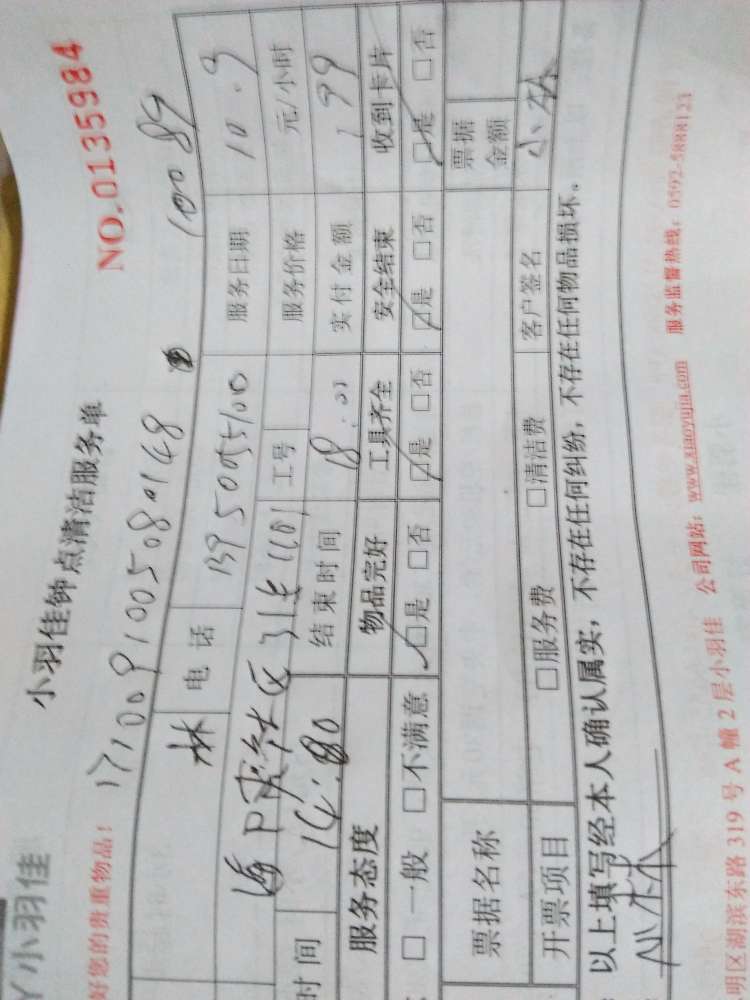 小羽佳
小羽佳钟点清洁服务单
NO.0135984
好您的贵重物品!
1710091005080148
10089
林 电话 13950055100 服务日期 10.9
海 社区31 1101 工号 服务价格 元/小时
时间 14: 结束时间 18:01 实付金额 199
服务态度 物品完好 工具齐全 安全结束 收到卡片
□一般 □不满意 □是 □否 □是 □否 □是 □否 □是 □否
票据名称 票据金额
开票项目 □服务费 □清洁费 客户签名 小林
以上填写经本人确认属实,不存在任何纠纷,不存在任何物品损坏。
小林
明区湖滨东路 319 号 A 幢 2 层小羽佳 公司网站:www.xiaoyujia.com 服务监督热线:0592-5888123